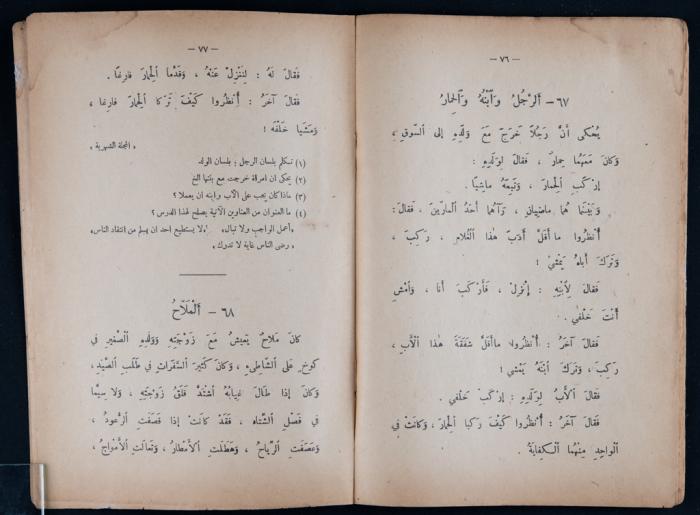 — ٧٦ —
٦٧ – اَلرَّجُلُ وَاَبْنُهُ وَاَلْحِمَارُ
يُحْكَى أَنَّ رَجُلاً خَرَجَ مَعَ وَلَدِهِ إِلَى السُّوقِ ،
وَكَانَ مَعَهُمَا حِمَارٌ ، فَقَالَ لِوَلَدِهِ :
إِرْكَبِ اَلْحِمَارَ ، وَتَبِعَهُ مَاشِيًا .
وَبَيْنَمَا هُمَا مَاضِيَانِ ، رَآهُمَا أَحَدُ اَلْمَارِّينَ ، فَقَالَ :
أُنْظُرُوا مَا أَقَلَّ أَدَبَ هٰذَا اَلْغُلَامِ ، رَكِبَ ،
وَتَرَكَ أَبَاهُ يَمْشِي !
فَقَالَ لِاَبْنِهِ : إِنْزِلْ ، فَأَرْكَبَ أَنَا ، وَاَمْشِ
أَنْتَ خَلْفِي .
فَقَالَ آخَرُ : أُنْظُرُوا مَا أَقَلَّ شَفَقَةَ هٰذَا اَلْأَبِ ،
رَكِبَ ، وَتَرَكَ اَبْنَهُ يَمْشِي !
فَقَالَ اَلْأَبُ لِوَلَدِهِ : إِرْكَبْ خَلْفِي .
فَقَالَ آخَرُ : أُنْظُرُوا كَيْفَ رَكِبَا اَلْحِمَارَ ، وَكَانَتْ فِي
اَلْوَاحِدِ مِنْهُمَا اَلْكِفَايَةُ .
— ٧٧ —
فَقَالَ لَهُ : لِنَنْزِلْ عَنْهُ ، وَقَدَّمَا اَلْحِمَارَ فَارِغًا .
فَقَالَ آخَرُ : أُنْظُرُوا كَيْفَ تَرَكَا اَلْحِمَارَ فَارِغًا ،
وَمَشَيَا خَلْفَهُ !
« المجلة الشهرية »
(١) تكلم بلسان الرجل ؛ بلسان الولد
(٢) يحكى ان امرأة خرجت مع بنتها الخ
(٣) ماذا كان يجب على الأب وابنه ان يعملا ؟
(٤) ما العنوان من العناوين الآتية يصلح لهذا الدرس ؟
«أعمل الواجب ولا تبال» «لا يستطيع احد ان يسلم من انتقاد الناس»
« رضى الناس غاية لا تدرك »
٦٨ – اَلْمَلَّاحُ
كَانَ مَلَّاحٌ يَعِيشُ مَعَ زَوْجَتِهِ وَوَلَدِهِ الصَّغِيرِ فِي
كُوخٍ عَلَى الشَّاطِىءِ ، وَكَانَ كَثِيرَ السَّفَرَاتِ فِي طَلَبِ الصَّيْدِ ،
وَكَانَ إِذَا طَالَ غِيَابُهُ اَشْتَدَّ قَلَقُ زَوْجَتِهِ ، وَلَا سِيَّمَا
فِي فَصْلِ الشِّتَاءِ ، فَقَدْ كَانَتْ إِذَا قَصَفَتِ الرُّعُودُ ،
وَعَصَفَتِ الرِّيَاحُ ، وَهَطَلَتِ اَلْأَمْطَارُ ، وَتَعَالَتِ اَلْأَمْوَاجُ ،